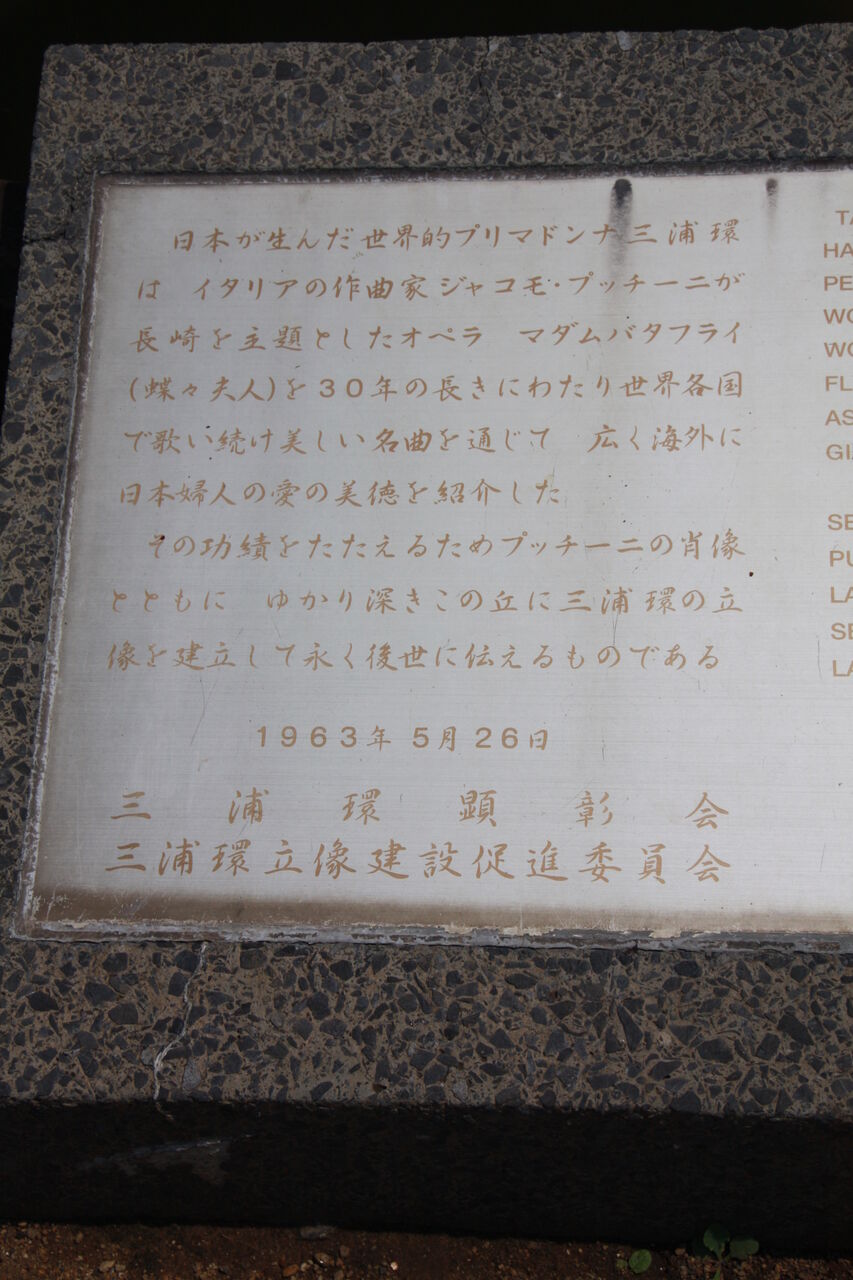 日本が生んだ世界的プリマドンナ三浦環
は　イタリアの作曲家ジャコモ・プッチーニが
長崎を主題としたオペラ　マダムバタフライ
(蝶々夫人)を30年の長きにわたり世界各国
で歌い続け美しい名曲を通じて　広く海外に
日本婦人の愛の美徳を紹介した
その功績をたたえるためプッチーニの肖像
とともに　ゆかり深きこの丘に三浦環の立
像を建立して永く後世に伝えるものである
1963年 5月26日
三浦環顕彰会
三浦環立像建設促進委員会
TA
HA
PE
WO
WO
FL
AS
GI
SE
PU
LA
SE
LA